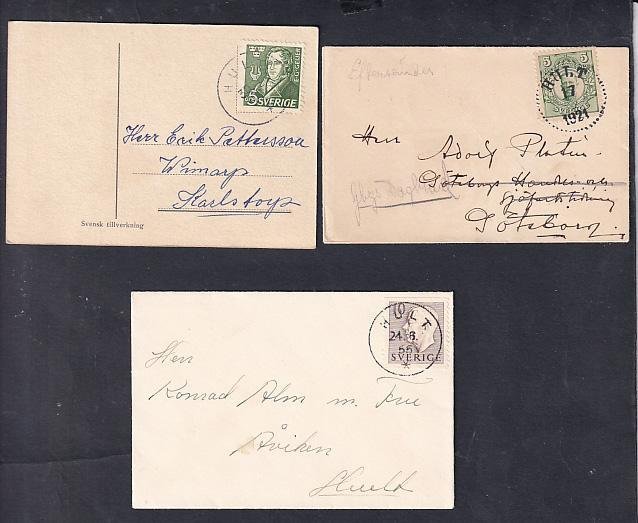 HULT
5
SVERIGE
E.G. GEIJER
Herr Erik Pettersson
Wimarp
Karlstorp
Svensk tillverkning
Eftersändes
5
HULT
17
1921
Herr
Adolf Platin
Göteborgs Handels- och
sjöfartstidning
Göteborg.
HULT
24.6.
55
SVERIGE
Herr
Konrad Alm m. Fru
Åviken
Hult